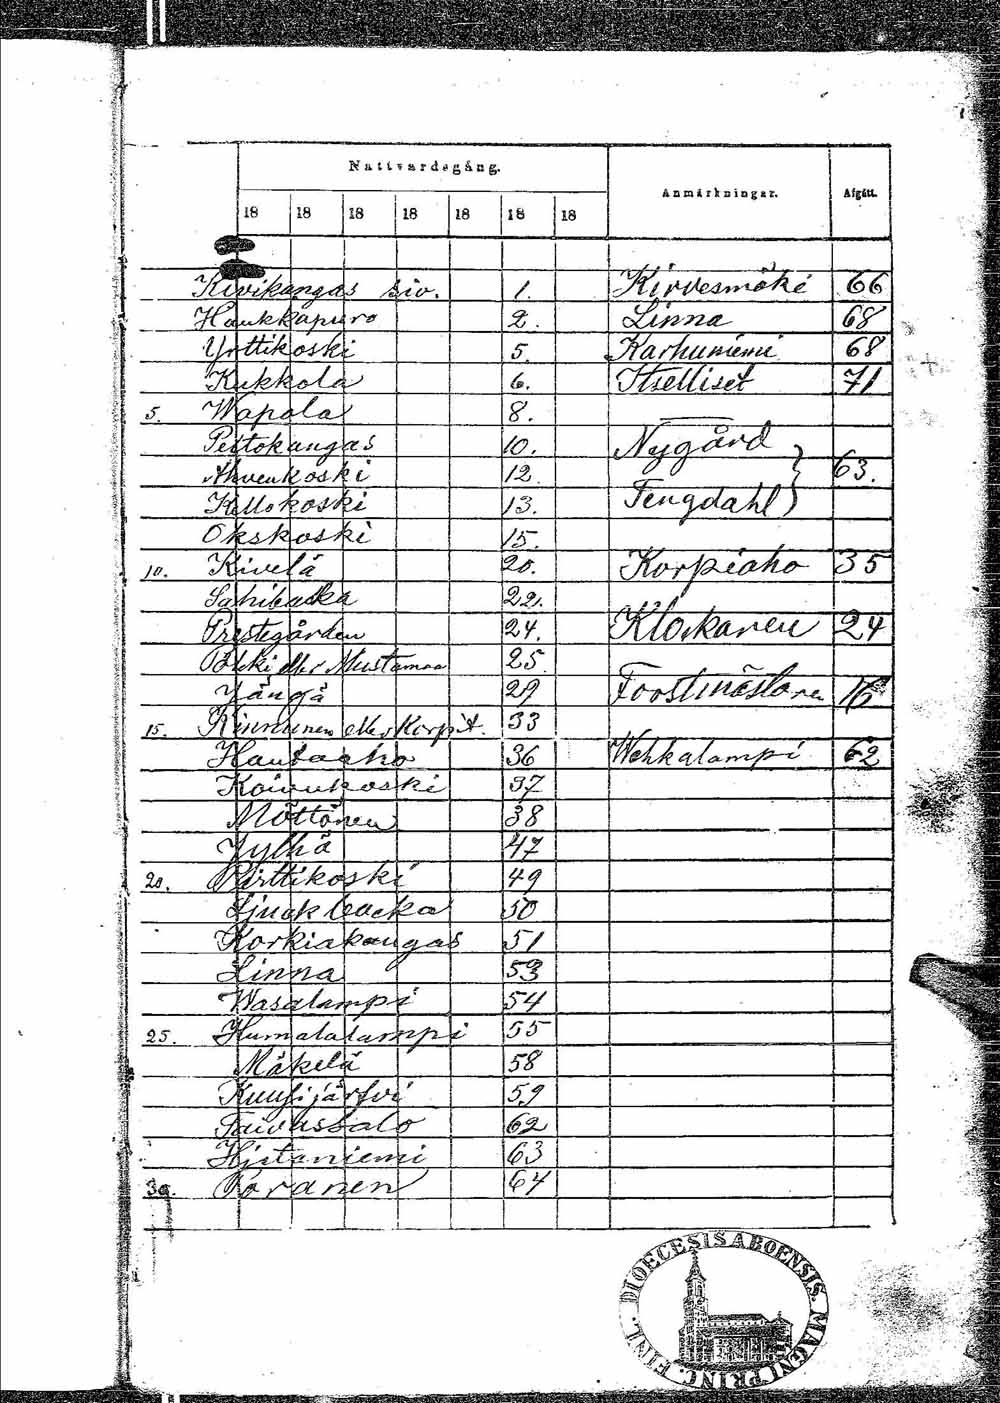 Nattvardsgång. Anmärkningar. Afgått.
18 18 18 18 18 18 18
Kivikangas siv. 1. Kirvesmäki 66
Haukkapuro 2. Linna 68
Yrttikoski 5. Karhuniemi 68
Kukkola 6. Itselliset 71
5. Wapola 8.
Peitokangas 10. Nygård
Ahvenkoski 12. 63.
Kellokoski 13. Tengdahl
Okskoski 15.
10. Kivelä 20. Korpiaho 35
22.
Prestegården 24. Klockaren 24
eller Mustamaa 25.
Jängä 29 16
15. Kinnunen eller 33
Hautaaho 36 Wehkalampi 62
Koivukoski 37
Möttönen 38
Jylhä 47
20. Pirttikoski 49
Ljuckbacka 50
Korkiakangas 51
Linna 53
Wasalampi 54
25. Humalalampi 55
Mäkelä 58
Kuusijärfvi 59
Taivassalo 62
Hietaniemi 63
30. Poranen 64
FINL. DIOECESIS ABOENSIS. MAGNI PRINC.